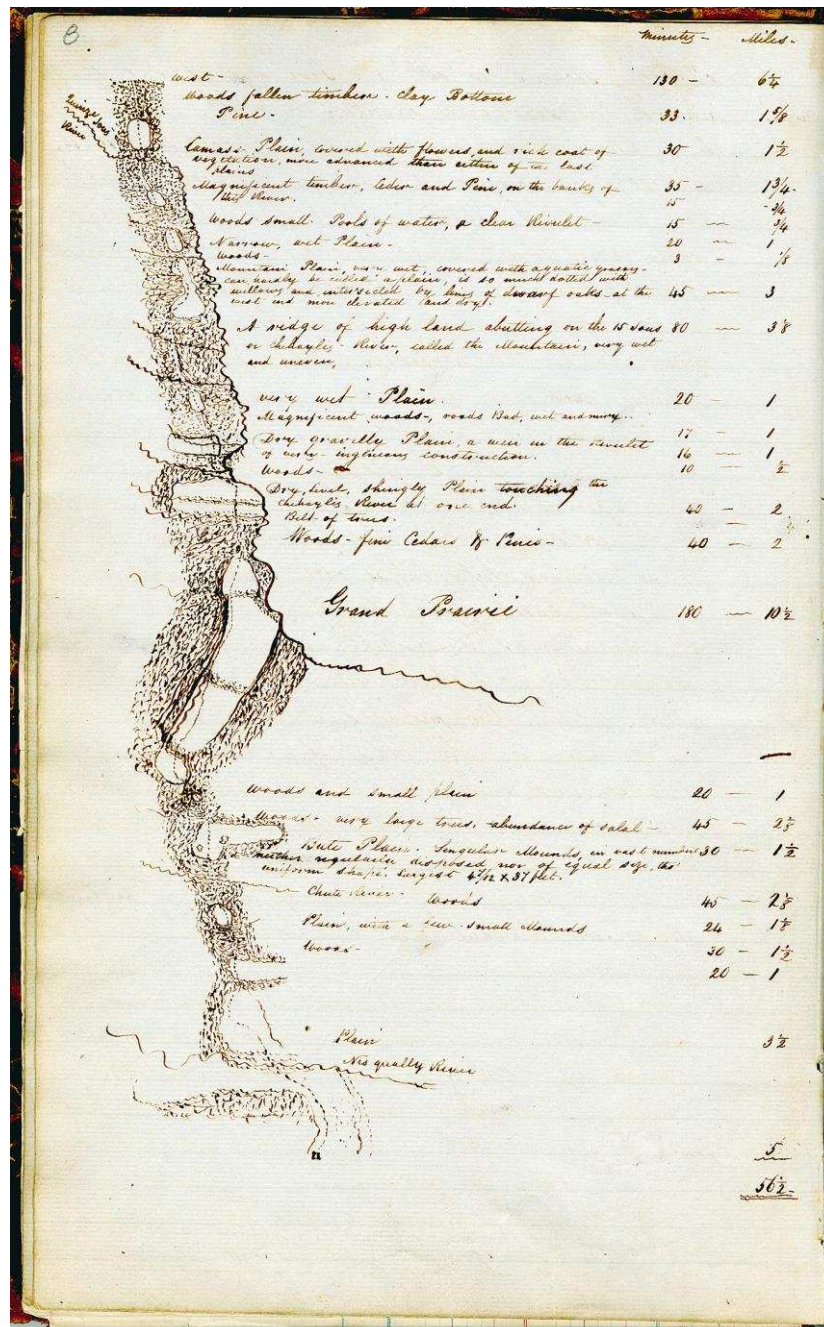 8
Minutes - Miles -
West - 130 - 6¼
Woods fallen timber - Clay Bottom
Pine - 33 - 1⅝
Quinze Sous
River
Camass Plain, covered with flowers, and rich coat of 30 1½
vegetation, more advanced than either of the last
plains
Magnificent timber, Ceder and Pine, on the banks of 35 - 1¾ -
this River. 15 - ¾
Woods small Pools of water, a clear Rivulet - 15 — ¾
Narrow, wet Plain - 20 — 1
Woods - 3 - ⅛
Mountain Plain, very wet, covered with aquatic grasses -
can hardly be called a plain, is so much dotted with
willows and intersected by lines of dwarf oaks - at the 45 — 3
west end more elevated and dry.
A ridge of high land abutting on the 15 Sous 80 —
or Chehayles River, called the Mountain, very wet
and uneven,
very wet Plain. 20 - 1
Magnificent woods -, roads Bad, wet and miry.. 17 - 1
Dry gravelly Plain, a weir in the Rivulet 16 — 1
of very - ingenious construction.
Woods - 10 - ½
Dry, level, shingly Plain touching the
Chehayles River at one end. 40 — 2
Belt of trees.
Woods - fine Cedars & Pines - 40 — 2
Grand Prairie 180 — 10½
Woods and small plain 20 — 1
Woods - very large trees, abundance of salal - 45 - 2⅛
Bute Plain. Singular Mounds, in vast number 30 - 1½
neither regularly disposed nor of equal size, the
uniform shape. Largest 4 7/12 X 37 feet.
Chute River - Woods 45 - 2⅛
Plain, with a few small Mounds 24 - 1⅛
Woods - 30 - 1½
20 - 1
Plain 3½
Nisqually River
5
56½ -